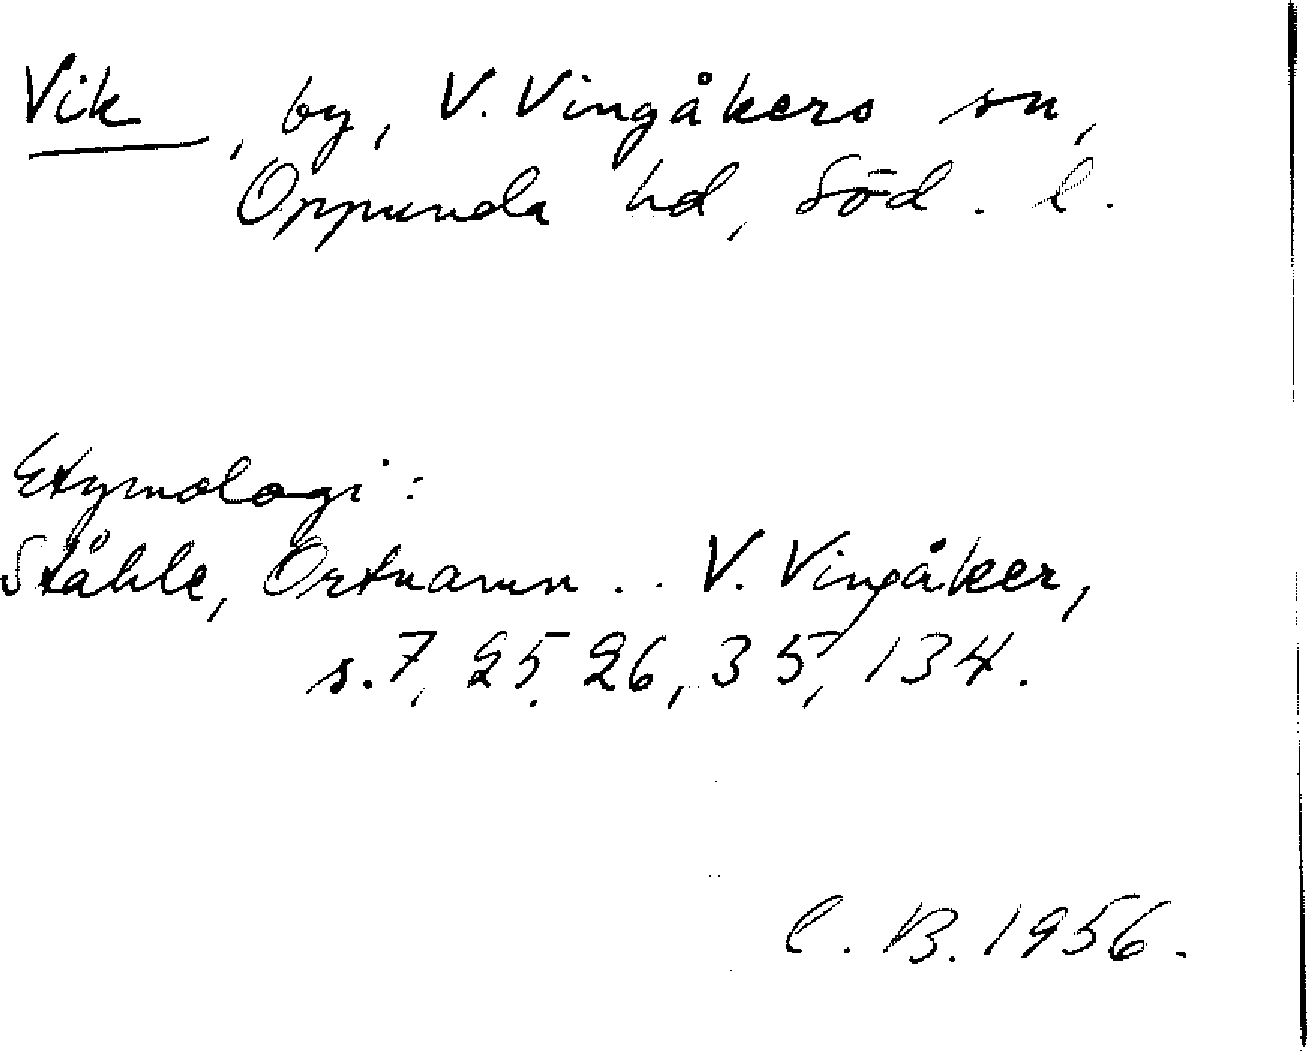 Vik, by, V. Vingåkers sn,
Oppunda hd, Söd. l.
Etymologi:
Ståhle, Ortnamn .. V. Vingåker,
s. 7, 25, 26, 35, 134.
C. B. 1956.